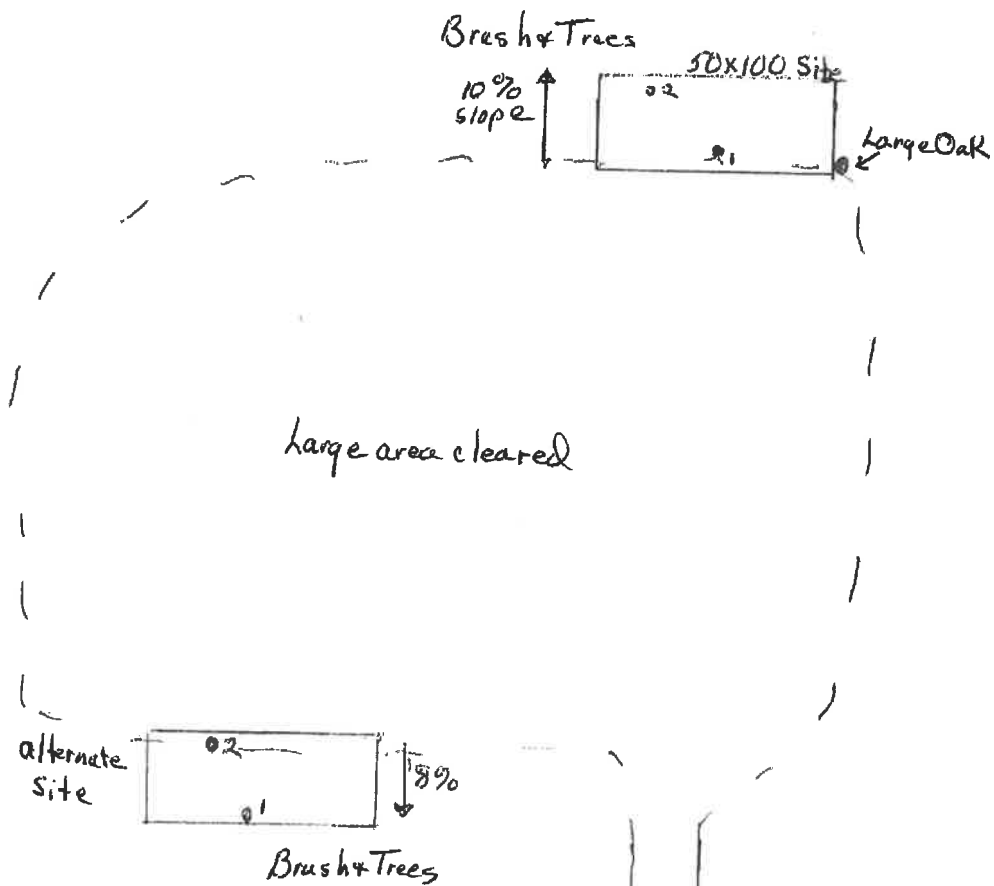 Brush & Trees
50x100 Site
10%
slope
o 2
1
Large Oak
Large area cleared
alternate
site
o 2
8%
o 1
Brush & Trees